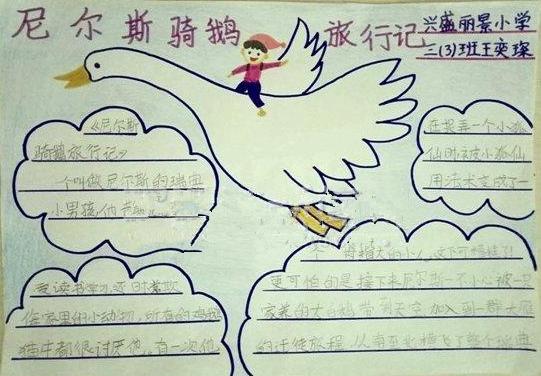 尼尔斯骑鹅旅行记
兴盛丽景小学
三(3)班王奕琛
《尼尔斯
骑鹅旅行记》
一个叫做尼尔斯的瑞典
小男孩,他
爱读书学习,还时常欺
家里的小动物,所有的鸡鸭
猫牛都很讨厌他。有一次他
在捉弄一个小狐
仙时被小狐仙
用法术变成了一
个拇指大的小人,这下可惨了!
更可怕的是接下来尼尔斯一不小心被一只
家养的大白鹅带到天空加入到一群大雁
的迁徙旅程,从南至北